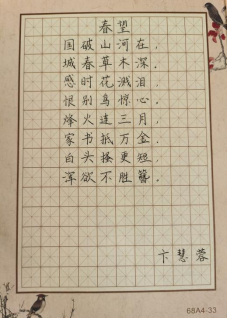 春望
国破山河在，
城春草木深，
感时花溅泪，
恨别鸟惊心，
烽火连三月，
家书抵万金，
白头搔更短，
浑欲不胜簪。
卞慧蓉
68A4-33